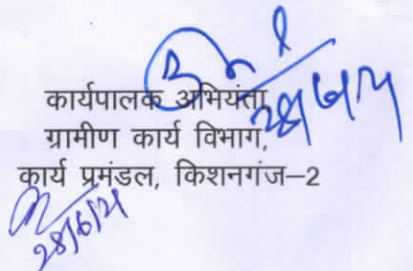 कार्यपालक अभियंता
ग्रामीण कार्य विभाग,
कार्य प्रमंडल, किशनगंज–2
28/6/21